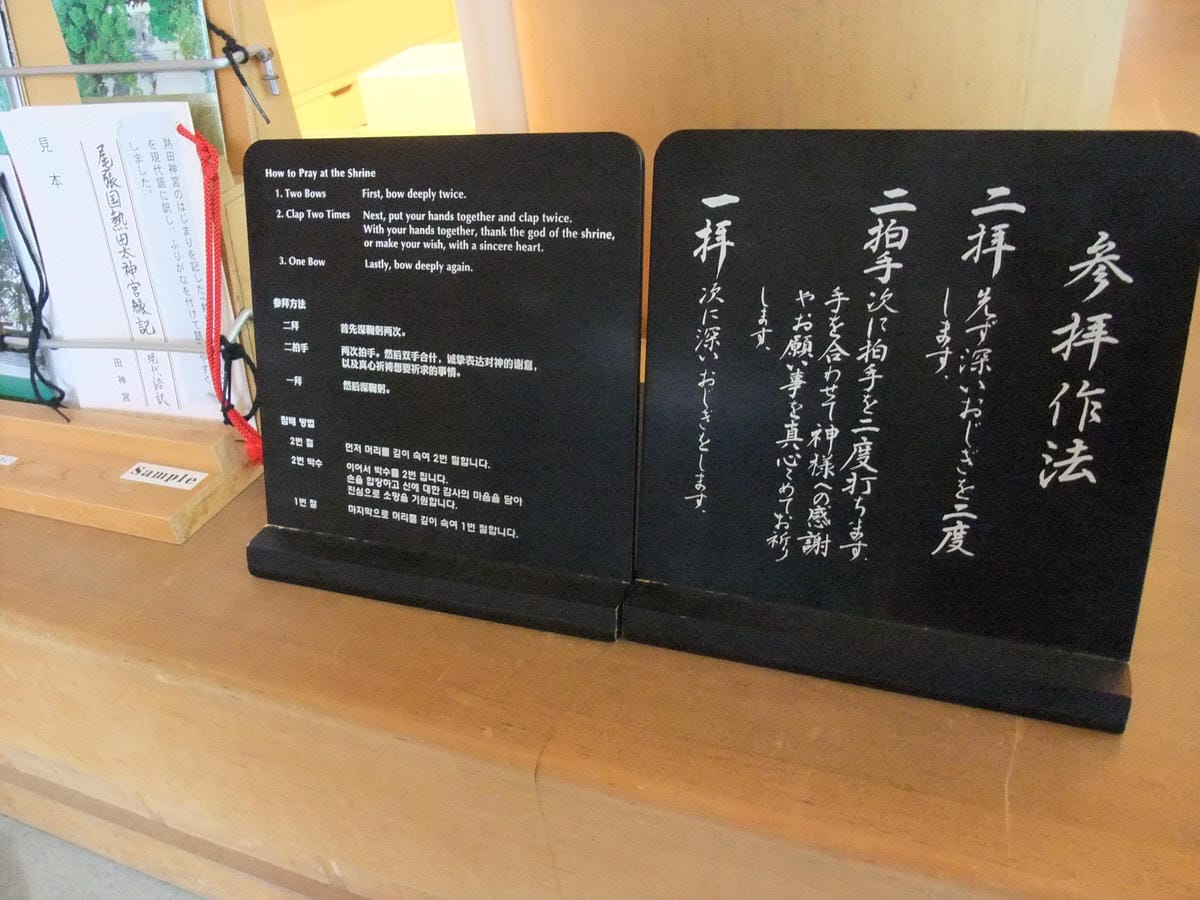 見本
熱田神宮のはじまりを記した
を現代語に訳し、ふりがなを付けて読みやすく
しました。
尾張国熱田太神宮縁記
現代語訳
田神宮
Sample
How to Pray at the Shrine
1. Two Bows First, bow deeply twice.
2. Clap Two Times Next, put your hands together and clap twice.
With your hands together, thank the god of the shrine,
or make your wish, with a sincere heart.
3. One Bow Lastly, bow deeply again.
参拜方法
二拜 首先深鞠躬两次。
二拍手 两次拍手。然后双手合什，诚挚表达对神的谢意，
以及真心祈祷想要祈求的事情。
一拜 然后深鞠躬。
참배 방법
2번 절 먼저 머리를 깊이 숙여 2번 절합니다.
2번 박수 이어서 박수를 2번 칩니다.
손을 합장하고 신에 대한 감사의 마음을 담아
진심으로 소망을 기원합니다.
1번 절 마지막으로 머리를 깊이 숙여 1번 절합니다.
参拝作法
二拝 先ず深いおじぎを二度
します。
二拍手 次に拍手を二度打ちます。
手を合わせて神様への感謝
やお願い事を真心こめてお祈り
します。
一拝 次に深いおじぎをします。